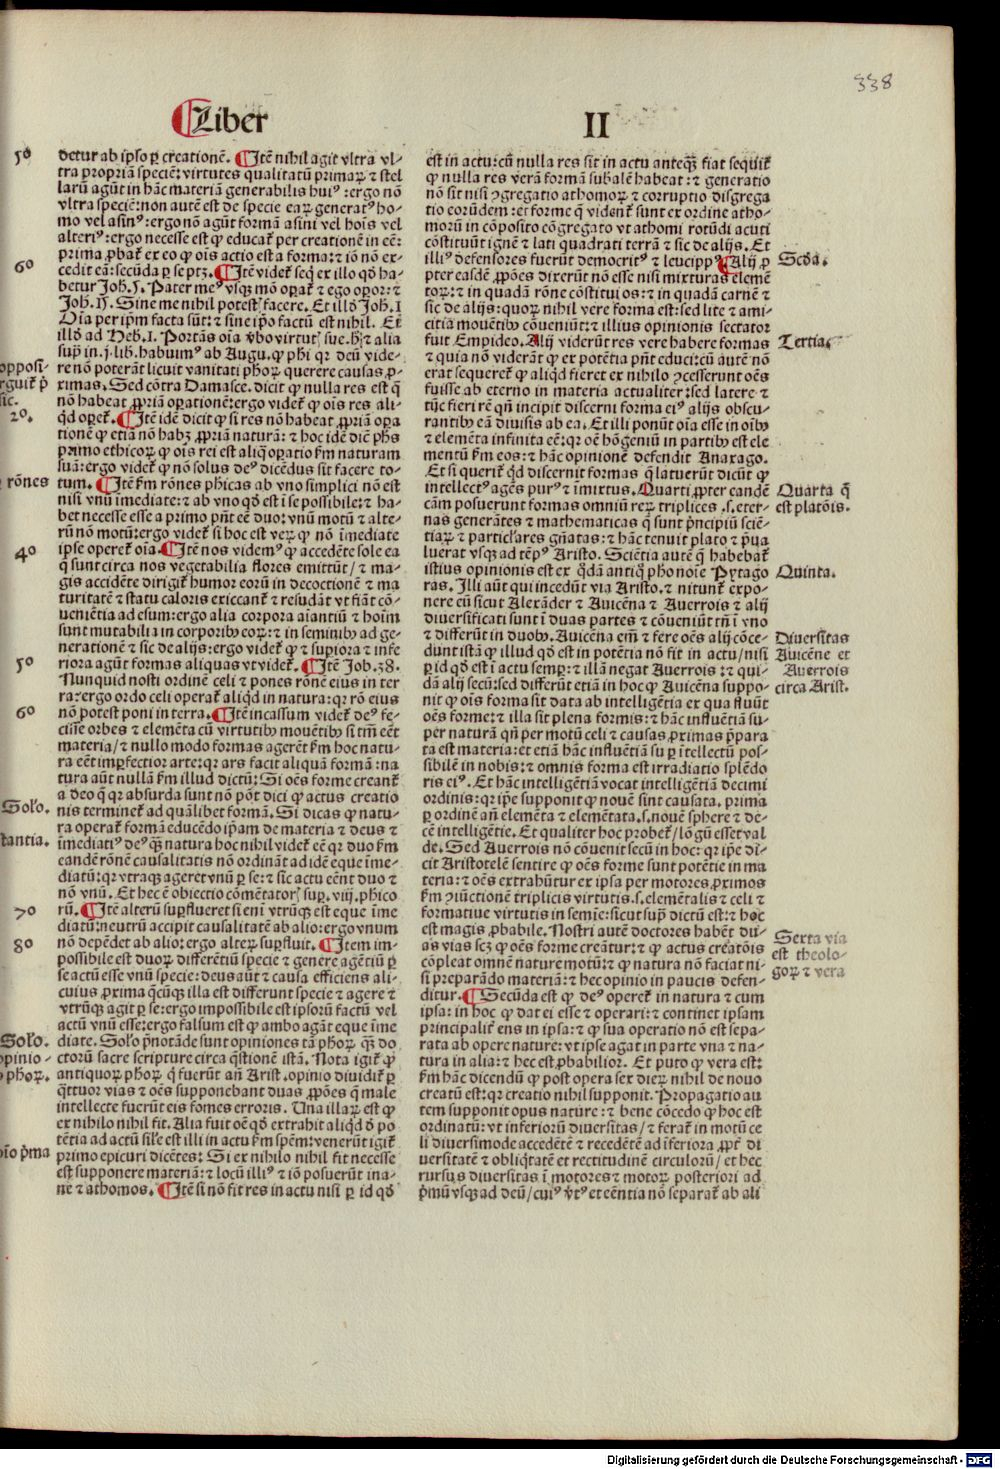 338
Liber
II
detur ab ip̄so ꝑ creationē. Itē nihil agit vltra vl-
tra propriā speciē: virtutes qualitatū primaꝝ ⁊ stel
larū agūt in hāc materiā generabilis huiꝰ: ergo nō
vltra speciē: non autē est de specie eaꝝ generatꝰ ho-
mo vel asinꝰ: ergo nō agūt formā asini vel hoīs vel
alteriꝰ: ergo necesse est ꝙ educat᷑ per creationē in eē:
prima ꝓbat᷑ ex eo ꝙ oīs actio est a forma: ⁊ iō nō ex-
cedit eā: secūda ꝑ se ptꝫ. Itē videt᷑ seq̄ ex illo qd̄ ha-
betur Joh̄. 5. Pater meꝰ vsqꝫ mō oꝑat᷑ ⁊ ego oꝑor: ⁊
Joh̄. 15. Sine me nihil potestꝭ facere. Et illō Joh̄. 1
Oīa per ip̄m facta sūt: ⁊ sine ip̄o factū est nihil. Et
illō ad Heb̄. 1. Portās oīa v̄bo virtutꝭ sue. ⁊ alia
sup̄ in. j. lib̄. habuimꝰ ab Augu. ꝙ ph̄i qꝛ deū vide-
re nō poterāt licuit vanitati ph̄oꝝ querere causas ꝓ-
ximas. Sed cōtra Damasce. dicit ꝙ nulla res est q̄
nō habeat ꝓpriā oꝑationē: ergo videt᷑ ꝙ oīs res ali-
qd̄ oꝑet᷑. Itē idē dicit ꝙ si res nō habeat ꝓpriā oꝑa
tionē ꝙ etiā nō habꝫ ꝓpriā naturā: ⁊ hoc idē dic̄ ph̄s
primo ethicoꝝ ꝙ oīs rei est aliq̄ oꝑatio ẜm naturam
suā: ergo videt᷑ ꝙ nō solus deꝰ dicēdus sit facere to-
tum. Itē ẜm rōnes ph̄icas ab vno simplici nō est
nisi vnū īmediate: ⁊ ab vno qd̄ est ī se possibile: ⁊ ha-
bet necesse esse a primo pn̄t eē duo: vnū motū ⁊ alte-
rū nō motū: ergo videt᷑ si hoc est verꝝ ꝙ nō īmediate
ipse operet᷑ oīa. Itē nos videmꝰ ꝙ accedēte sole ea
q̄ sunt circa nos vegetabilia flores emittūt/ ⁊ ma-
gis accidēte dirigit᷑ humor eorū in decoctionē ⁊ ma
turitatē ⁊ statu caloris exiccant᷑ ⁊ resudāt vt fiāt cō-
uenētia ad esum: ergo alia corpora aīantiū ⁊ hoīm
sunt mutabilia in corporibꝰ eoꝝ: ⁊ in seminibꝰ ad ge-
nerationē ⁊ sic de alijs: ergo videt᷑ ꝙ suꝑiora ⁊ infe
riora agūt formas aliquas vt videt᷑. Itē Job. 38.
Nunquid nosti ordinē celi ⁊ pones rōnē eius in ter
ra: ergo ordo celi operat᷑ aliqd̄ in natura: qꝛ rō eius
nō potest poni in terra. Itē incassum videt᷑ deꝰ fe-
cisse orbes ⁊ elemēta cū virtutibꝰ mouētibꝰ si tm̄ eēt
materia/ ⁊ nullo modo formas agerēt ẜm hoc natu-
ra eēt imꝑfectior arte: qꝛ ars facit aliquā formā: na
tura aūt nullā ẜm illud dictū: Si oēs forme creant᷑
a deo q̄ qꝛ absurda sunt nō pōt dici ꝙ actus creatio
nis terminet᷑ ad quālibet formā. Si dicas ꝙ natu-
ra operat᷑ formā educēdo ip̄am de materia ⁊ deus ⁊
īmediatiꝰ deꝰ qꝫ natura hoc nihil videt᷑ eē qꝛ duo ẜm
eandē rōnē causalitatis nō ordinātad idē eque īme-
diatū: qꝛ vtraqꝫ ageret vnū ꝑ se: ⁊ sic actu eēnt duo ⁊
nō vnū. Et hec ē obiectio cōmētatorꝭ suꝑ. viij. phico
rū. Itē alterū suꝑflueret si enī vtrūqꝫ est eque īme
diatū: neutrū accipit causalitatē ab alio: ergo vnum
nō depēdet ab alio: ergo alteꝝ suꝑfluit. Item im-
possibile est duoꝝ differētiū specie ⁊ genere agētiū ꝑ
se actū esse vnū specie: deus aūt ⁊ causa efficiens ali-
cuius ꝓxima q̄cūqꝫ illa est differunt specie ⁊ agere ⁊
vtrūqꝫ agit ꝑ se: ergo impossibile est ipsorū factū vel
actū vnū esse: ergo falsum est ꝙ ambo agāt eque īme
diate. Solo p̄notāde sunt opiniones tā ph̄oꝝ qꝫ do
ctorū sacre scripture circa q̄stionē istā. Nota igit᷑ ꝙ
antiquoꝝ ph̄oꝝ q̄ fuerūt an̄ Arist. opinio diuidit᷑ ꝑ
q̄ttuor vias ⁊ oēs supponebant duas ꝓpōes q̄ male
intellecte fuerūt eis fomes erroris. Una illaꝝ est ꝙ
ex nihilo nihil fit. Alia fuit oē qd̄ extrahit aliqd̄ d̄ po
tētia ad actū sil̄e est illi in actu ẜm spēm: venerūt igit᷑
primo epicuri dicētes: Si ex nihilo nihil fit necesse
est supponere materiā: ⁊ locū illiꝰ ⁊ iō posuerūt ina-
ne ⁊ athomos. Itē si nō fit res in actu nisi ꝑ id qd̄
est in actu: cū nulla res sit in actu anteqꝫ fiat sequit᷑
ꝙ nulla res verā formā sub̄alē habeat: ⁊ generatio
nō sit nisi ꝯgregatio athomoꝝ ⁊ corruptio disgrega
tio eorūdem: et forme q̄ vident᷑ sunt ex ordine atho-
morū in cōposito cōgregato vt athomi rotūdi acuti
cōstituūt ignē ⁊ lati quadrati terrā ⁊ sic de alijs. Et
illiꝰ defensores fuerūt democritꝰ ⁊ leucippꝰ. Alij ꝓ
pter easdē ꝓpōes dixerūt nō esse nisi mixturas elemē
toꝝ: ⁊ in quadā rōne cōstitui os: ⁊ in quadā carnē ⁊
sic de alijs: quoꝝ nihil vere forma est: sed lite ⁊ ami-
citiā mouētibꝰ cōueniūt: ⁊ illius opinionis sectator
fuit Empideo. Alij viderūt res vere habere formas
⁊ quia nō viderāt ꝙ ex potētia pn̄t educi: cū autē nō
erat sequeret᷑ ꝙ aliqd̄ fieret ex nihilo ꝯcesserunt oēs
fuisse ab eterno in materia actualiter: sed latere ⁊
tūc fieri rē qn̄ incipit discerni forma eiꝰ alijs obscu-
rantibꝰ eā diuisis ab ea. Et illi ponūt oīa esse in oībꝰ
⁊ elemēta infinita eē: qꝛ oē hōgeniū in partibꝰ est ele
mentū ẜm eos: ⁊ hāc opinionē defendit Anaxago.
Et si querit᷑ qd̄ discernit formas q̄ latuerūt dicūt ꝙ
intellectꝰ agēs purꝰ ⁊ imixtus. Quarti ꝓpter eandē
cām posuerunt formas omniū reꝝ triplices .s. eter-
nas generātes ⁊ mathematicas q̄ sunt p̄ncipiū sciē-
tiaꝝ ⁊ particl̄ares gn̄atas: ⁊ hāc tenuit plato ⁊ p̄ua
luerat vsqꝫ ad tēpꝰ Aristo. Sciētia autē q̄ habebat᷑
istius opinionis est ex q̄dā antiq̄ ph̄o noīe Pytago
ras. Illi aūt qui incedūt via Aristo. ⁊ nitunt᷑ expo-
nere eū sicut Alexāder ⁊ Auicēna ⁊ Auerrois ⁊ alij
diuersificati sunt ī duas partes ⁊ cōueniūt tn̄ ī vno
⁊ differūt in duobꝰ. Auicēna eīm ⁊ fere oēs alij cōce-
dunt istā ꝙ illud qd̄ est in potētia nō fit in actu/ nisi
ꝑ id qd̄ est ī actu semꝑ: ⁊ illā negat Auerrois: ⁊ qui-
dā alij secū: sed differūt etiā in hoc ꝙ Auicēna suppo-
nit ꝙ oīs forma sit data ab intelligētia ex qua fluūt
oēs forme: ⁊ illa sit plena formis: ⁊ hāc influētiā su-
per naturā qn̄ per motū celi ⁊ causas ꝓximas p̄para
ta est materia: et etiā hāc influētiā suꝑ ītellectū pos-
sibilē in nobis: ⁊ omnis forma est irradiatio splēdo
ris eiꝰ. Et hāc intelligētiā vocat intelligētiā decimi
ordinis: qꝛ ip̄e supponit ꝙ nouē sint causata. prima
ꝑ ordinē an̄ elemēta ⁊ elemētata. s. nouē sphere ⁊ de-
cē intelligētie. Et qualiter hoc probet᷑/ lōgū esset val
de. Sed Auerrois nō cōuenit secū in hoc: qꝛ ip̄e di-
cit Aristotelē sentire ꝙ oēs forme sunt potētie in ma
teria: ⁊ oēs extrahūtur ex ipsa per motores ꝓximos
ẜm ꝯiūctionē triplicis virtutis. s. elemētalis ⁊ celi ⁊
formatiue virtutis in semīe: sicut sup̄ dictū est: ⁊ hoc
est magis ꝓbabile. Nostri autē doctores habēt du-
as vias scꝫ ꝙ oēs forme creātur: ⁊ ꝙ actus creatōis
cōpleat omnē nature motū: ⁊ ꝙ natura nō faciat ni-
si preparādo materiā: ⁊ hec opinio in paucis defen-
ditur. Secūda est ꝙ deꝰ operet᷑ in natura ⁊ cum
ipsa: in hoc ꝙ dat ei esse ⁊ operari: ⁊ continet ipsam
principalit᷑ ens in ipsa: ⁊ ꝙ sua operatio nō est sepa-
rata ab opere nature: vt ipse agat in parte vna ⁊ na-
tura in alia: ⁊ hec est ꝓbabilior. Et puto ꝙ vera est:
ẜm hāc dicendū ꝙ post opera sex dieꝝ nihil de nouo
creatū est: qꝛ creatio nihil supponit. Propagatio au
tem supponit opus nature: ⁊ bene cōcedo ꝙ hoc est
ordinatū: vt inferiorū diuersitas/ ⁊ ferat᷑ in motū ce
li diuersimode accedētē ⁊ recedētē ad īferiora ꝓpt᷑ di
uersitatē ⁊ obliq̄tatē et rectitudinē circulorū/ et hec
rursus diuersitas ī motores ⁊ motoꝝ posteriori ad
p̄mū vsqꝫ ad deū/ cuiꝰ v̄tꝰ et eēntia nō separat᷑ ab ali
50
60
opposi-
rguit᷑ p̄
sic.
20.
rōnes
40
50
60
Solo.
stantia.
70
80
Solo.
opinio-
ph̄oꝝ.
pīo p̄ma
Scd̄a.
Tertia.
Quarta q̄
est platōis.
Quinta.
Diuersitas
Auicēne et
Auerrois
circa Arist.
Sexta via
est theolo-
goꝝ ⁊ vera
Digitalisierung gefördert durch die Deutsche Forschungsgemeinschaft - DFG